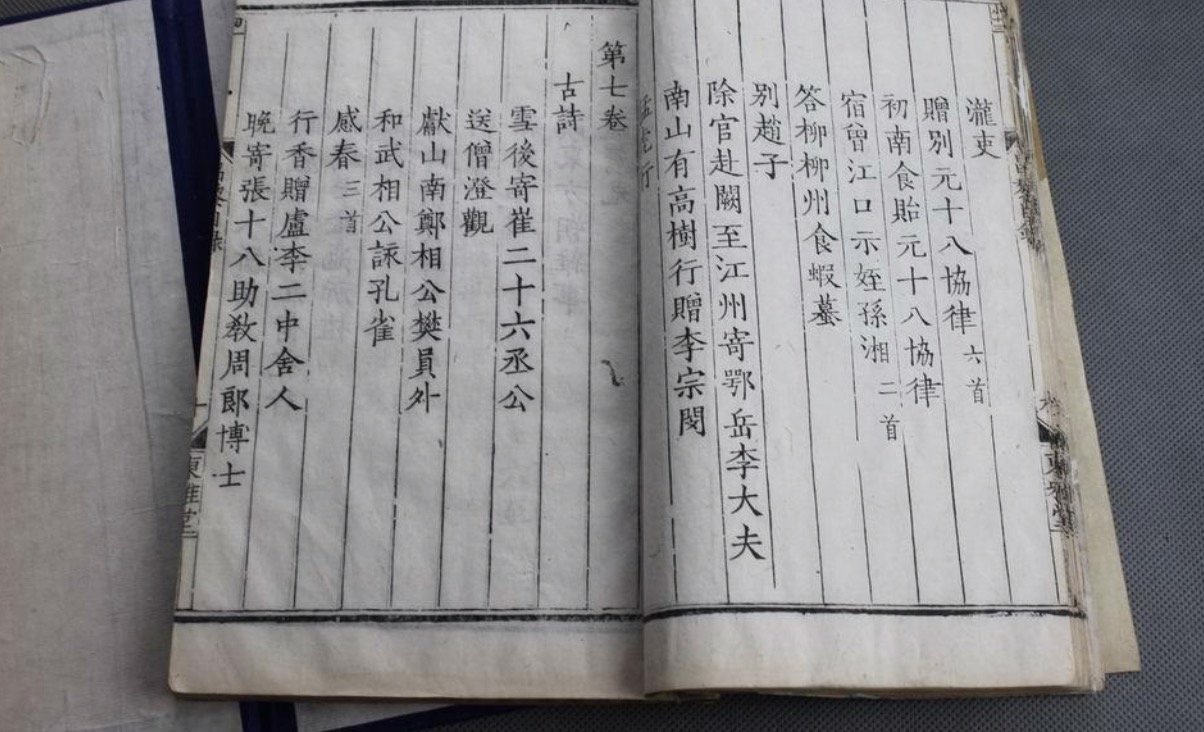 瀧吏
贈別元十八協律六首
初南食貽元十八協律
宿曾江口示姪孫湘二首
答柳柳州食蝦蟇
別趙子
除官赴闕至江州寄鄂岳李大夫
南山有高樹行贈李宗閔
猛虎行
第七卷
古詩
雪後寄崔二十六丞公
送僧澄觀
獻山南鄭相公樊員外
和武相公詠孔雀
感春三首
行香贈盧李二中舍人
晚寄張十八助敎周郎博士
東雅堂
東雅堂